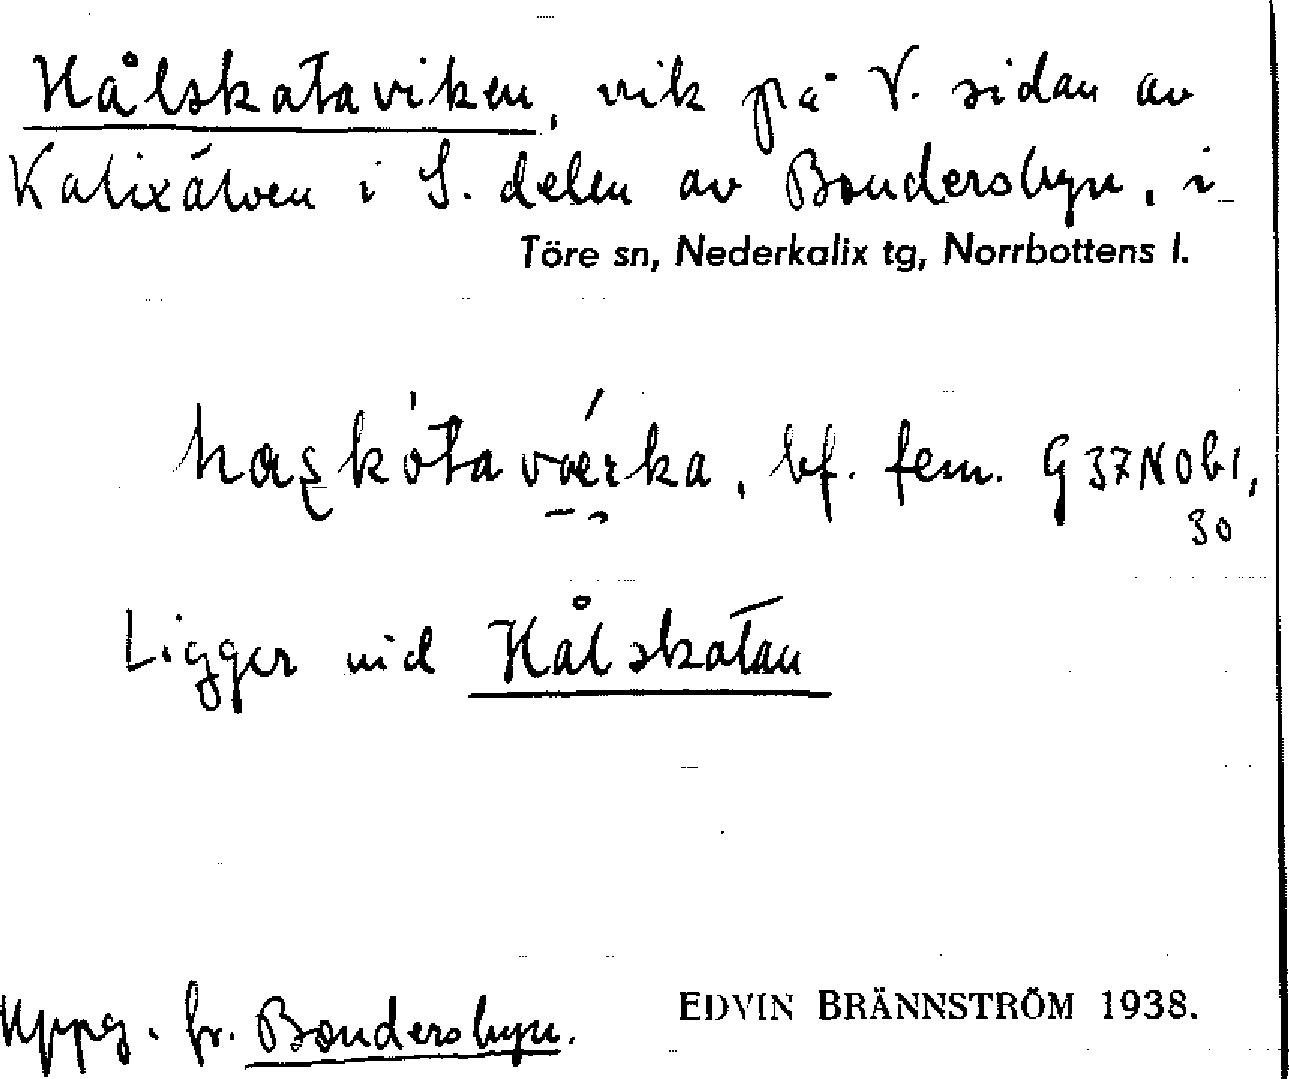 Hålskataviken, vik på V. sidan av
Kalixälven i S. delen av Bondersbyn, i
Töre sn, Nederkalix tg, Norrbottens l.
bf. fem. G37N0b1,
30
Ligger vid Hålskatan
Uppg. fr. Bondersbyn.
EDVIN BRÄNNSTRÖM 1938.